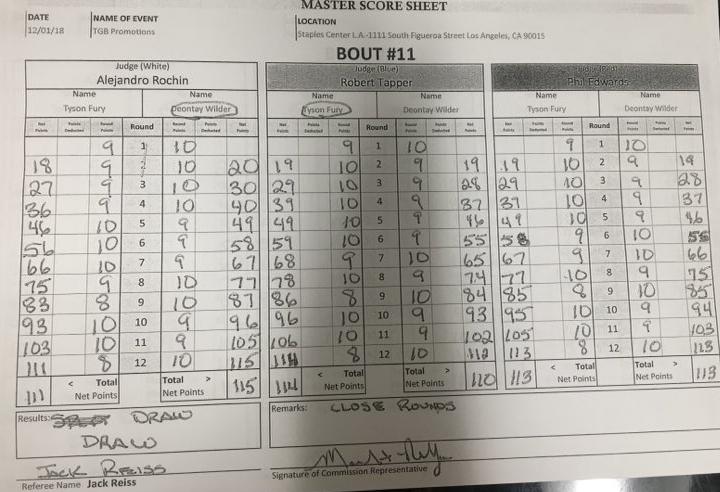 MASTER SCORE SHEET
DATE NAME OF EVENT LOCATION
12/01/18 TGB Promotions Staples Center L.A.-1111 South Figueroa Street Los Angeles, CA 90015
BOUT #11
Judge (White) Judge (Blue) Judge (Red)
Alejandro Rochin Robert Tapper Phil Edwards
Name Name Name Name Name Name
Tyson Fury Deontay Wilder Tyson Fury Deontay Wilder Tyson Fury Deontay Wilder
Net Points Points Deducted Round Points Round Round Points Points Deducted Net Points Net Points Points Deducted Round Points Round Round Points Points Deducted Net Points Net Points Points Deducted Round Points Round Round Points Points Deducted Net Points
9 1 10 9 1 10 9 1 10
18 9 2 10 20 19 10 2 9 19 19 10 2 9 19
27 9 3 10 30 29 10 3 9 28 29 10 3 9 28
36 9 4 10 40 39 10 4 9 37 39 10 4 9 37
46 10 5 9 49 49 10 5 9 46 49 10 5 9 46
56 10 6 9 58 59 10 6 9 55 58 9 6 10
66 10 7 9 67 68 9 7 10 65 67 9 7 10 66
75 9 8 10 77 78 10 8 9 74 77 10 8 9 75
83 8 9 10 87 86 8 9 10 84 85 8 9 10 85
93 10 10 9 96 96 10 10 9 93 95 10 10 9 94
103 10 11 9 105 106 10 11 9 102 105 10 11 9 103
111 8 12 10 115 114 8 12 10 112 113 8 12 10 113
< Total Total > < Total Total > < Total Total >
111 Net Points Net Points 115 114 Net Points Net Points 110 113 Net Points Net Points 113
Results: DRAW Remarks: CLOSE ROUNDS
DRAW
JACK REISS
Referee Name Jack Reiss Signature of Commission Representative